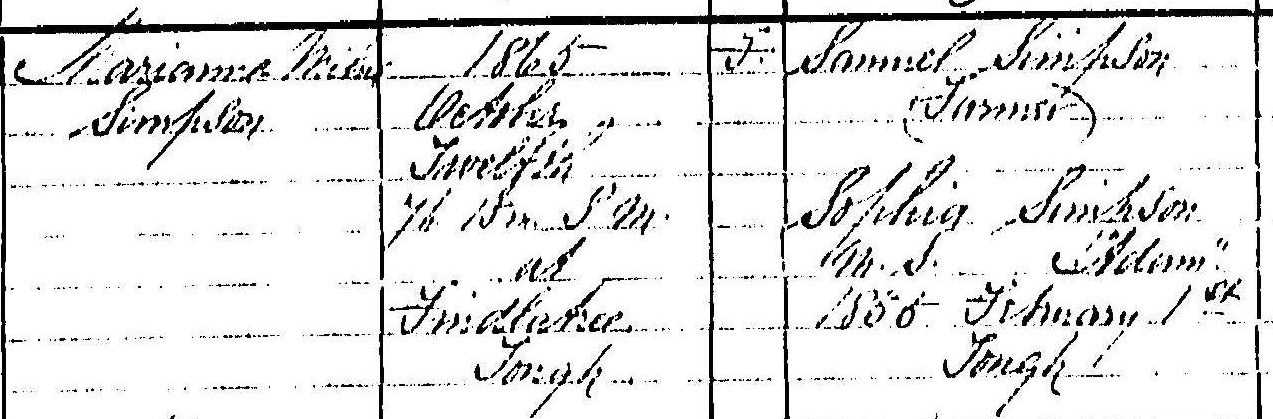 Marianne Milne
Simpson
1865
October
Twelfth
7h 15m P.M.
at
Findlatree
Tough
F.
Samuel Simpson
(Farmer)
Sophia Simpson
M.S. "Adam"
1855 February 1st
Tough